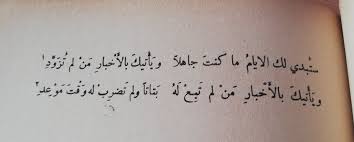 ستبدي لك الايام ما كنت جاهلا ويأتيك بالأخبار من لم تزود
ويأتيك بالأخبار من لم تبع له بتاتا ولم تضرب له وقت موعد